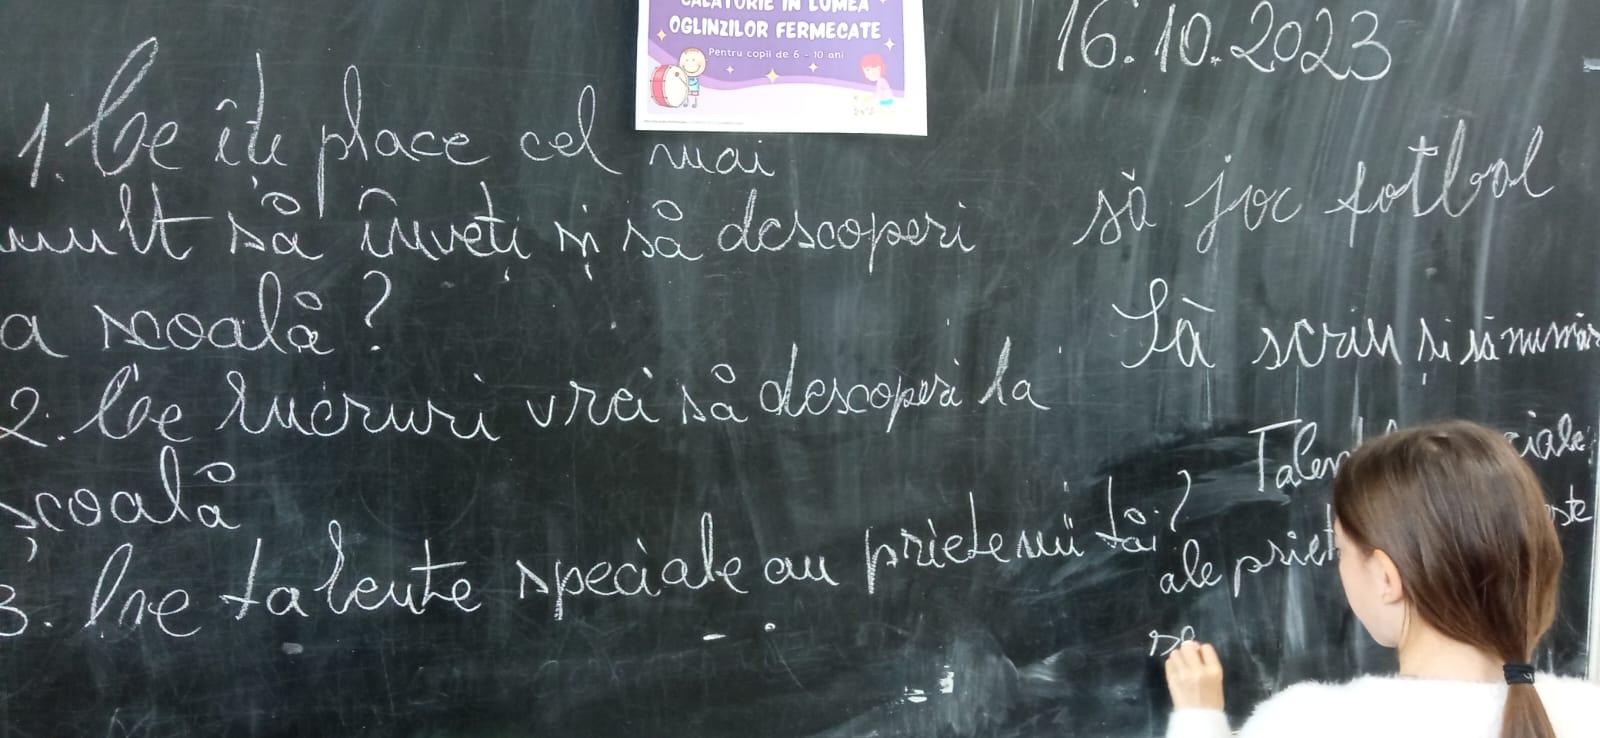 CĂLĂTORIE ÎN LUMEA
OGLINZILOR FERMECATE
Pentru copii de 6 - 10 ani
16.10.2023
1. Ce îți place cel mai
mult să înveți și să descoperi
a școală?
2. Ce lucruri vrei să descoperi la
școală
3. Ce talente speciale au prietenii tăi?
să joc fotbal
Să scriu și să număr
ale